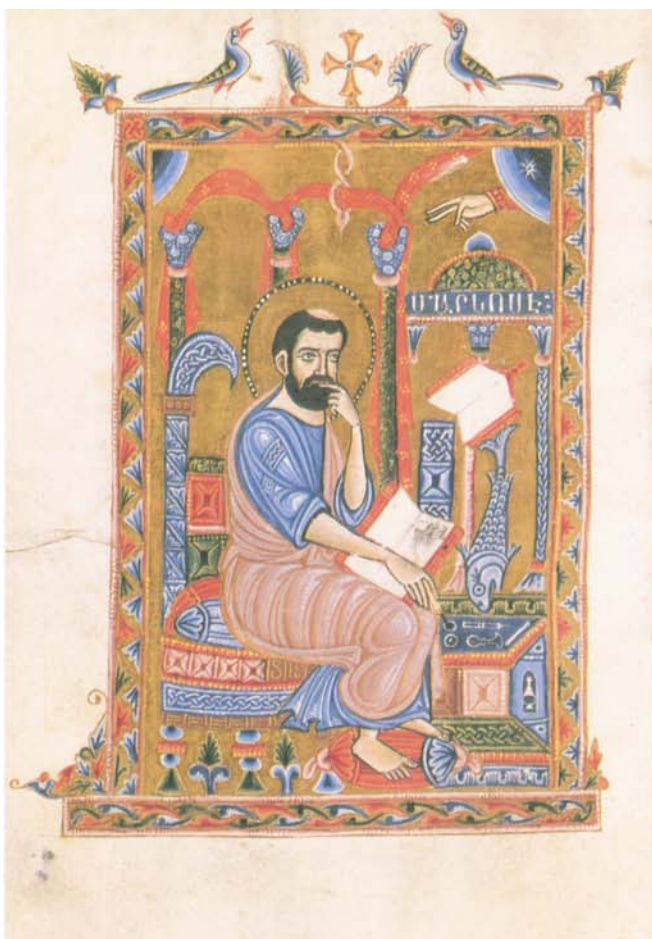 ՄԱՐԿՈՍԷ: